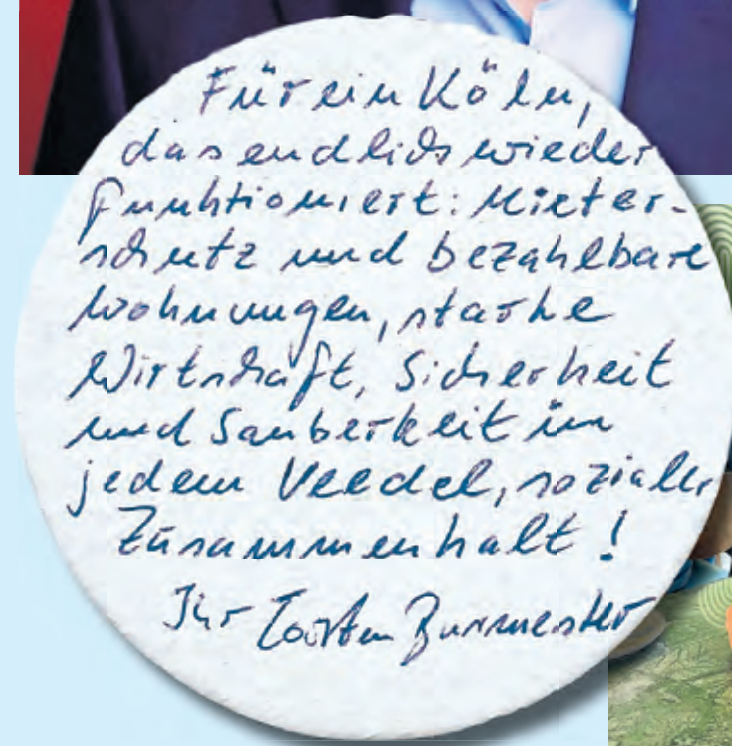 Für ein Köln,
das endlich wieder
funktioniert: Mieter-
schutz und bezahlbare
Wohnungen, starke
Wirtschaft, Sicherheit
und Sauberkeit in
jedem Veedel, sozialer
Zusammenhalt!
Ihr Torsten Burmester